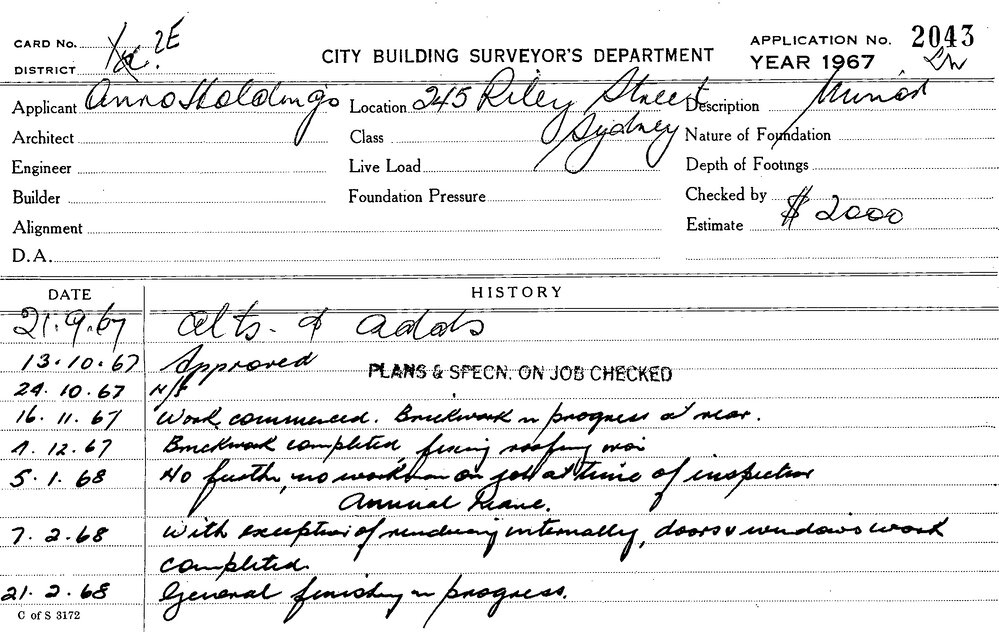 CARD No. 2E
DISTRICT
CITY BUILDING SURVEYOR'S DEPARTMENT
APPLICATION No. 2043
YEAR 1967
Applicant Anro Holdings Location 245 Riley Street Description Minor
Architect Class Sydney Nature of Foundation
Engineer Live Load Depth of Footings
Builder Foundation Pressure Checked by
Alignment Estimate $2000
D.A.
DATE HISTORY
21.9.67 Alts. & adds
13.10.67 Approved PLANS & SPECN. ON JOB CHECKED
24.10.67 N/S
16.11.67 Work commenced. Brickwork in progress at rear.
12.67 Brickwork completed, fixing roofing
5.1.68 No further, no workman on job at time of inspection
Annual Leave.
7.2.68 With exception of rendering internally, doors & windows work
completed
21.2.68 General finishing in progress.
C of S 3172